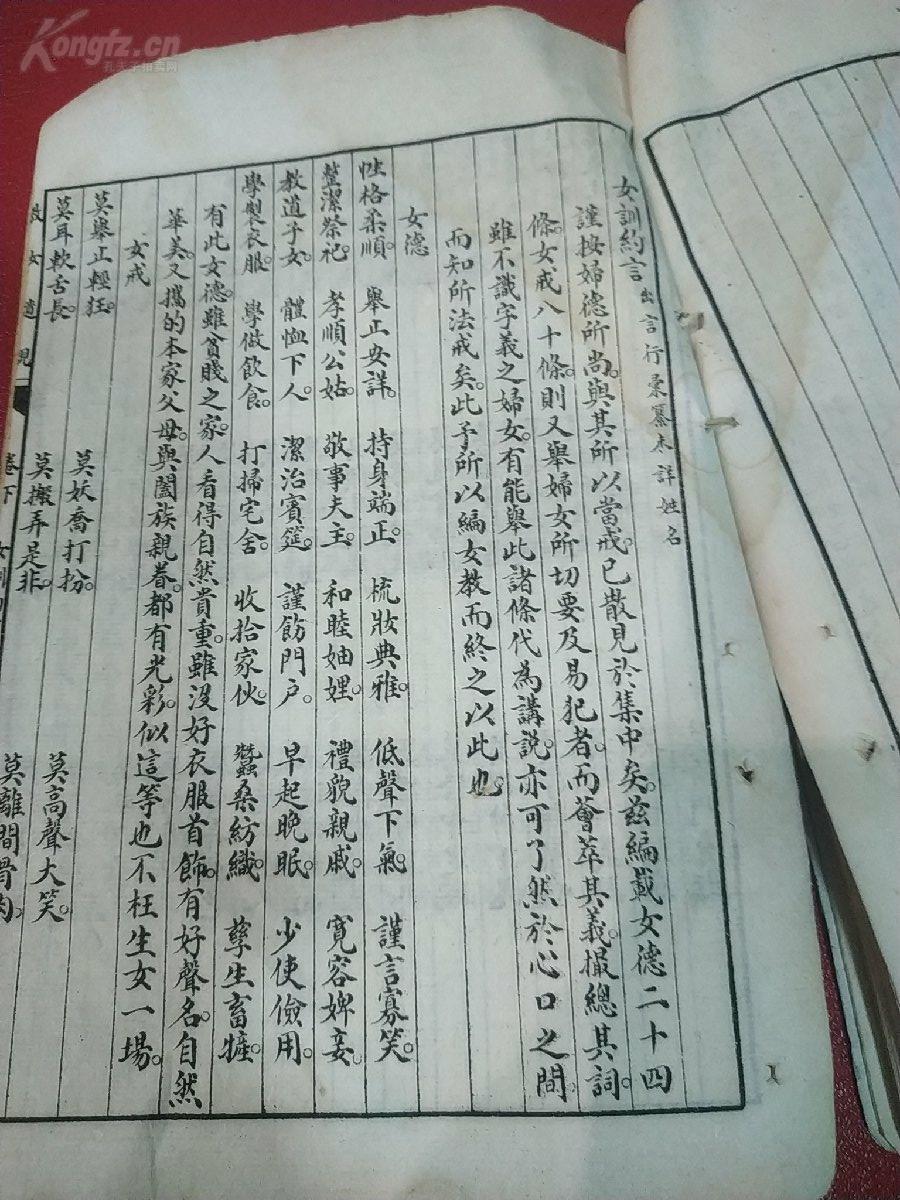 Kongfz.cn
孔夫子拍卖网
女訓約言 出言行彙纂未詳姓名
謹按婦德所尚。與其所以當戒。已散見於集中矣。茲編載女德二十四
條。女戒八十條。則又舉婦女所切要及易犯者。而薈萃其義。撮總其詞。
雖不識字義之婦女。有能舉此諸條代為講說。亦可了然於心口之間。
而知所法戒矣。此予所以編女教而終之以此也。
女德
性格柔順。 舉止安詳。 持身端正。 梳妝典雅。 低聲下氣。 謹言寡笑。
整潔祭祀。 孝順公姑。 敬事夫主。 和睦妯娌。 禮貌親戚。 寬容婢妾。
教道子女。 體恤下人。 潔治賓筵。 謹飭門戶。 早起晚眠。 少使儉用。
學製衣服。 學做飲食。 打掃宅舍。 收拾家伙。 蠶桑紡織。 孳生畜牲。
有此女德。雖貧賤之家。人看得自然貴重。雖沒好衣服首飾。有好聲名。自然
華美。又攜的本家父母。與闔族親眷。都有光彩。似這等也不枉生女一場。
女戒
莫舉止輕狂。 莫妖喬打扮。 莫高聲大笑。
莫耳軟舌長。 莫搬弄是非。 莫離間骨肉。
教女遺規 卷下 女訓